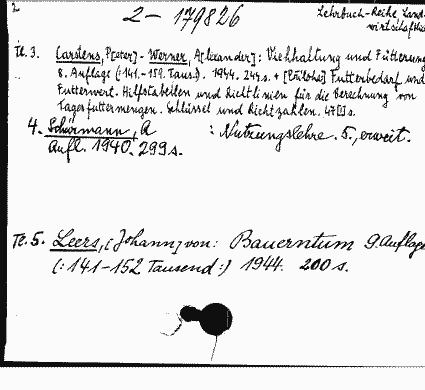 2-179826
Lehrbuch-Reihe Land-
wirtschaftlich
Te. 3. Carstens, P[eter] - Werner, A[lexander]: Viehhaltung und Fütterung
8. Auflage (:141.-159. Taus.:). 1944. 247 s. +
Futterbedarf und
Futterwert. Hilfstabellen und Richtlinien für die Berechnung von
Tagesfuttermengen. Schlüssel und Richtzahlen. 47[1]s.
4. Schürmann, A : Nutzungslehre. 5., erweit.
Aufl. 1940. 299 s.
Te. 5. Leers, [Johann] von: Bauerntum 9. Auflage
(:141-152 Tausend:) 1944. 200 s.